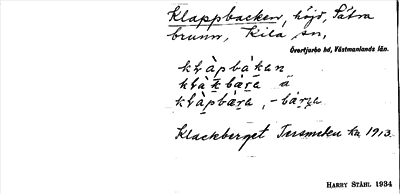 Klappbacken, höjd, Sätra
brunn, Kila sn,
Övertjurbo hd, Västmanlands län.
klàpbàkan
klàkbæra ä
klàpbæra, -bærga
Klackberget Tersmeden ka 1913.
HARRY STÅHL 1934